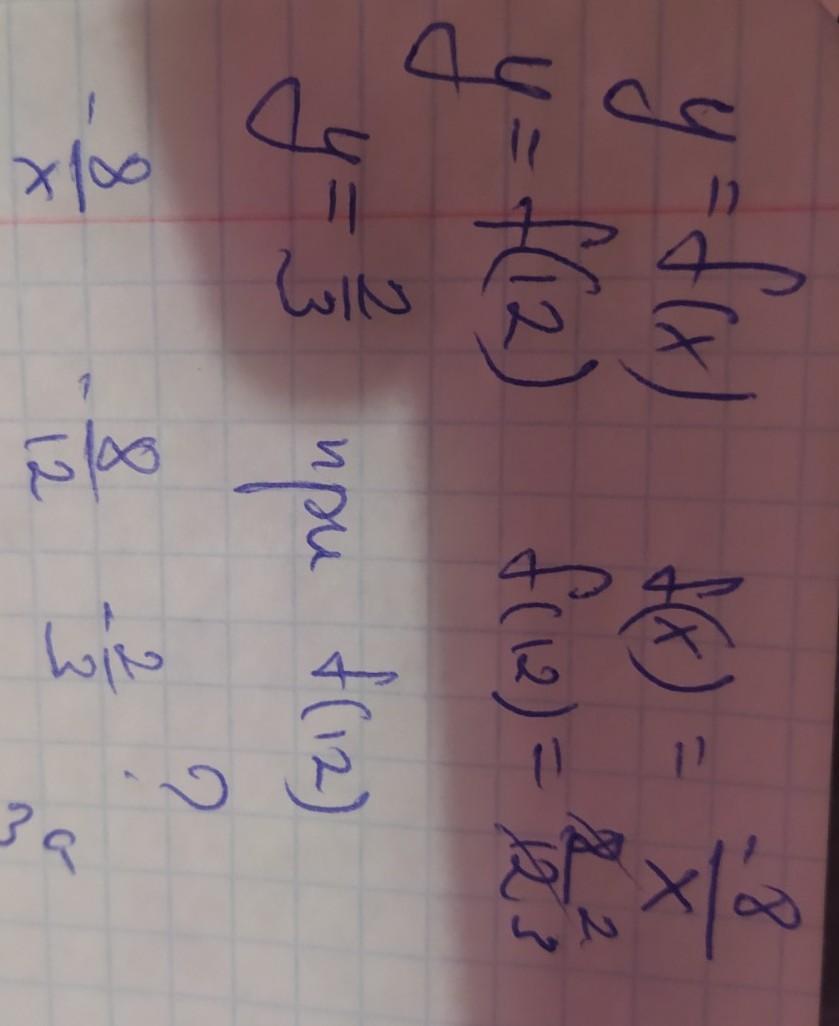 y = f(x) f(x) = -8/x
y = f(12) f(12) = 8/12 2/3
y = 2/3 при f(12)
-8/x -8/12 -2/3 ?